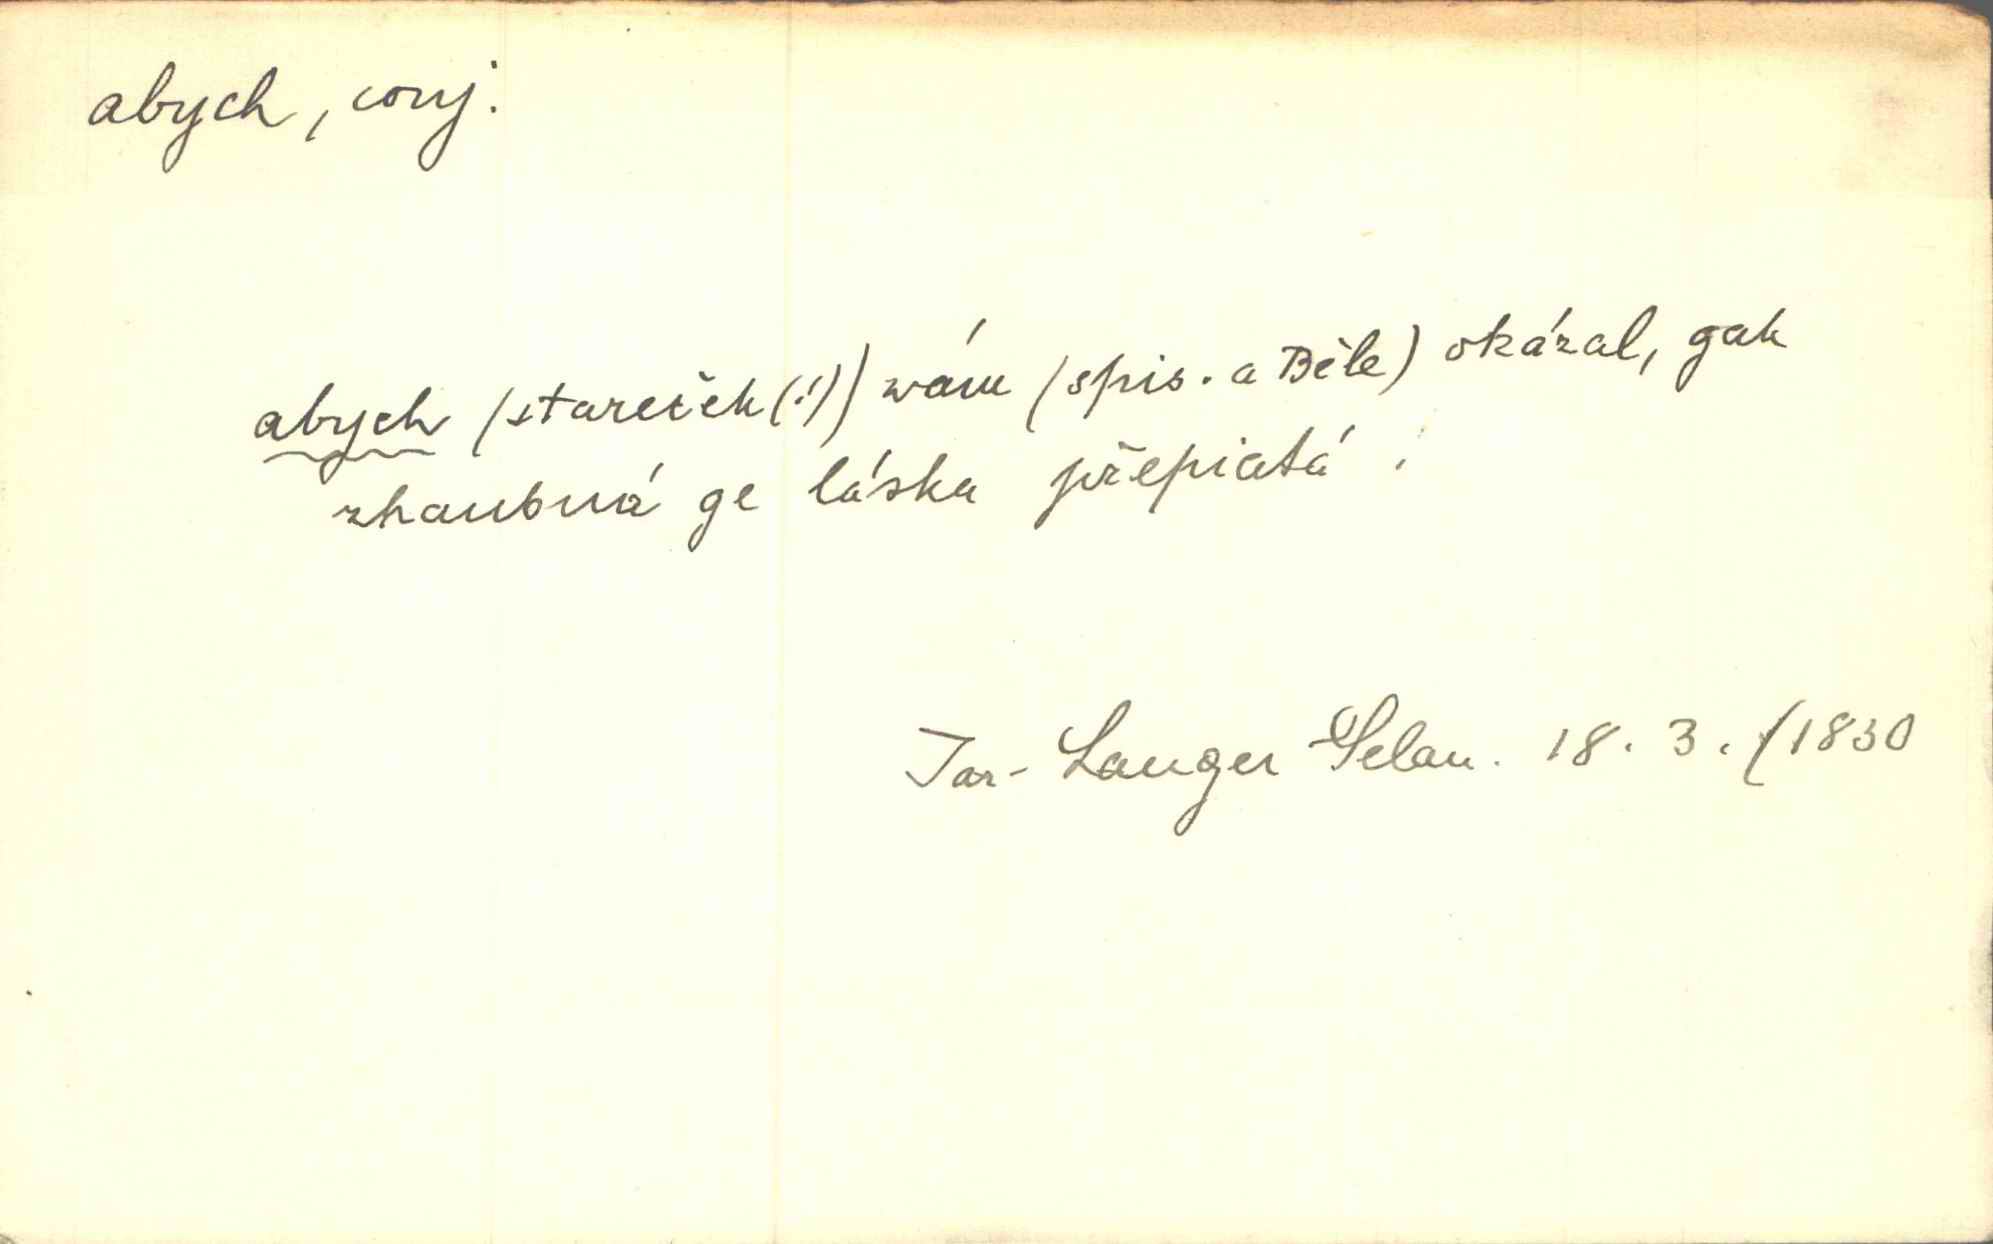 abych, conj.
abych (stareček(!)) wám (spis. a Běle) okázal, gak
zhaubná ge láska přepiatá!
Jar. Langer Selan. 18. 3. (1830